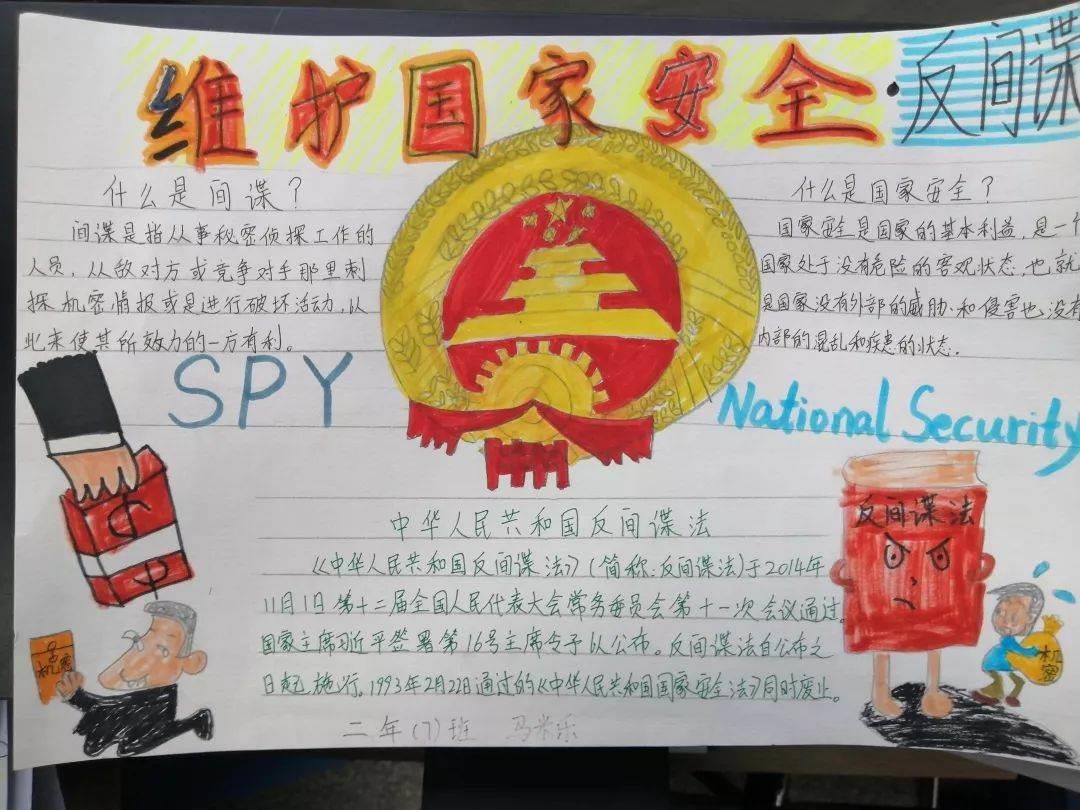 维护国家安全·反间谍
什么是间谍？
间谍是指从事秘密侦探工作的
人员，从敌对方或竞争对手那里刺
探机密情报或是进行破坏活动，以
此来使其所效力的一方有利。
SPY
什么是国家安全？
国家安全是国家的基本利益，是一个
国家处于没有危险的客观状态，也就
是国家没有外部的威胁和侵害也没有
内部的混乱和疾患的状态.
National Security
中华人民共和国反间谍法
《中华人民共和国反间谍法》（简称：反间谍法）于2014年
11月1日第十二届全国人民代表大会常务委员会第十一次会议通过。
国家主席习近平签署第16号主席令予以公布。反间谍法自公布之
日起施行，1993年2月22日通过的《中华人民共和国国家安全法》同时废止。
二年（7）班 马米乐
机密
反间谍法
机密